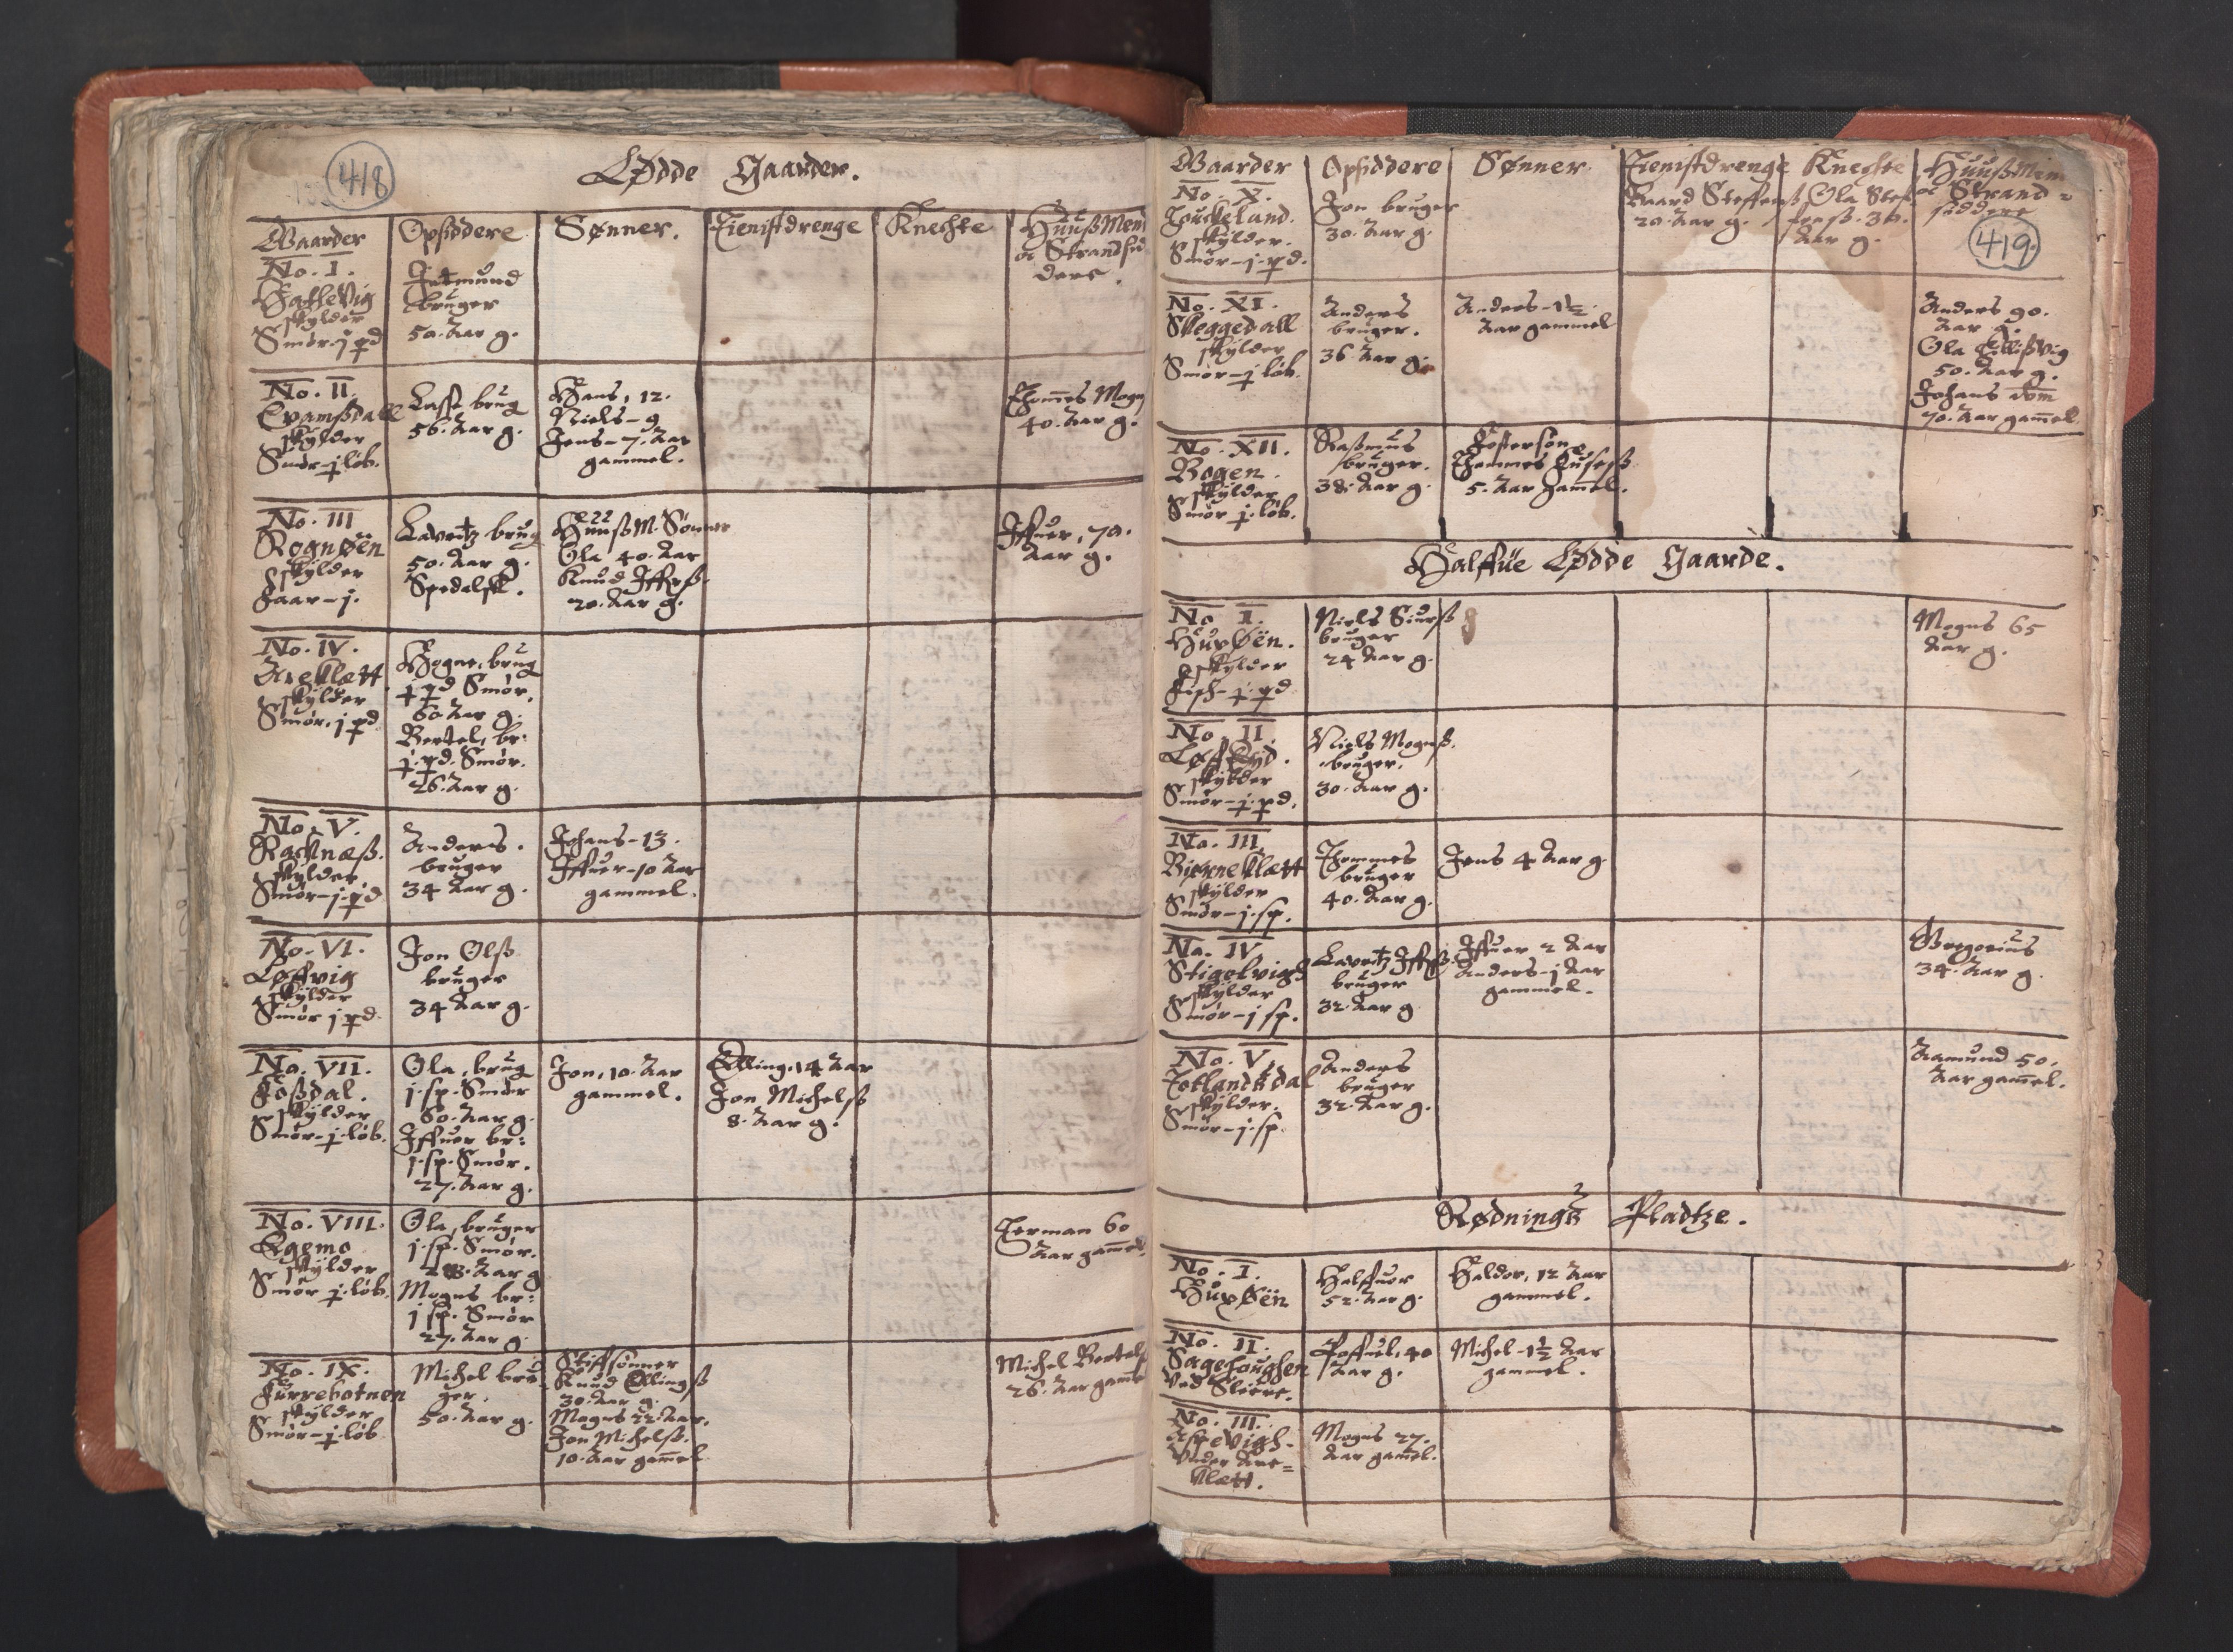 418
LØdde Gaarder.
Gaarder
Opsiddere
Sønner.
Tienistdrenge
Knechte
HuußMend
oc Strandsid
dere.
No. I.
skylder
Smør-j pd
bruger
50. Aar g.
No. II
skylder
Smør-j løb.
Lasse brug
56. Aar g.
Hans, 12.
Niels-9
Jens-7. Aar
gammel.
Thomes Mogns
40. Aar g.
No. III
RognØen
skylder
Faar-j.
Lavritz brug
50. Aar g.
Spedalsk.
HuußM. Sønner
Ola 40. Aar
Knud Iffrß.
20. Aar g.
Iffuer, 70.
Aar g.
No. IV.
Areklætt
skylder
Smør. j pd
Hogne, brug
j pd Smør.
60 Aar g.
Bertel, br:
j. pd. Smør.
26. Aar g.
No. V.
Racknæß.
skylder
Smør-j. pd
Anders.
bruger
34 Aar g.
Johans-13.
Iffuer-10 Aar
gammel.
No. VI.
Løffvig
skylder
Smør j pd.
Jon Olß
bruger
34 Aar g.
No. VII.
Foßdal.
skylder
Smør-j. løb.
Ola, brug
j. sp. Smør
60. Aar g.
Iffuer br:
j. sp. Smør.
27. Aar g.
Jon, 10. Aar
gammel.
Elling. 14 Aar
Jon Michelß
8. Aar g.
No. VIII.
Egemo
skylder
Smør j. løb.
Ola, bruger
j. sp. Smør.
28. Aar g
Mogns br:
j sp. Smør
27. Aar g.
Terman 60
Aar gamel.
No. IX.
Furrebotnen
skylder
Smør-j. løb
Michel bru-
ger.
50. Aar g.
Stiffsønner
Knud Ellingß
30. Aar g.
Mogns 22. Aar.
Jon Michelß.
10. Aar gamel
Michel Bertelß
26. Aar gamel
419.
Gaarder
Opsiddere
Sønner
Tienistdrenge
Knechte
HuußMen
oc Strand=
siddere
No. X.
skylder.
Smør-j. pd.
Jon bruger
30. Aar g.
Baard Steffenß
20. Aar g.
Ola Stef-
fenß. 30.
Aar g.
No. XI.
Skeggedall
skylder
Smør-j løb.
Anders
bruger.
36. Aar g.
Anders-1½
Aar gammel
Anders 90.
Aar g.
Ola Ellißvig
50. Aar g.
Johans ibm
70. Aar gamel.
No. XII.
Bogen.
skylder
Smør j. løb.
Rasmus
bruger.
38. Aar g.
Fosterson
Thommes
5. Aar gamel.
Halffue LØdde Gaarde.
No I.
HuxØen.
skylder
Fisk-j. pd
Niels Siurß
bruger
24 Aar g.
Mogns 65
Aar g.
No. II.
skylder
Smør-j. pd.
Niels Mognß.
bruger.
30. Aar g.
No. III.
Biørneklætt
skylder
Smør-j. sp.
Thommes
bruger
40. Aar g.
Jens 4 Aar g
No. IV
Stigelvigh
skylder
Smør-j sp.
Lavritz Iffrß
bruger
32. Aar g
Iffuer 2 Aar
Anders-j Aar
gammel.
Gregorius
34. Aar g.
No. V.
Totlandßdal
skylder.
Smør-j. sp.
Anders
bruger
32. Aar g.
Aamund 50.
Aar gamel.
Rødningß Pladtze.
No. I.
HuxØen
Halffuor
52. Aar g.
Haldor, 12 Aar
gammel.
No. II.
Sagehoughen
ved Sleire.
Poffuel. 40
Aar g.
Michel-1½ Aar
gammel.
No. III.
Aspevigh-
under Are=
klætt.
Mogns 27.
Aar gamel.